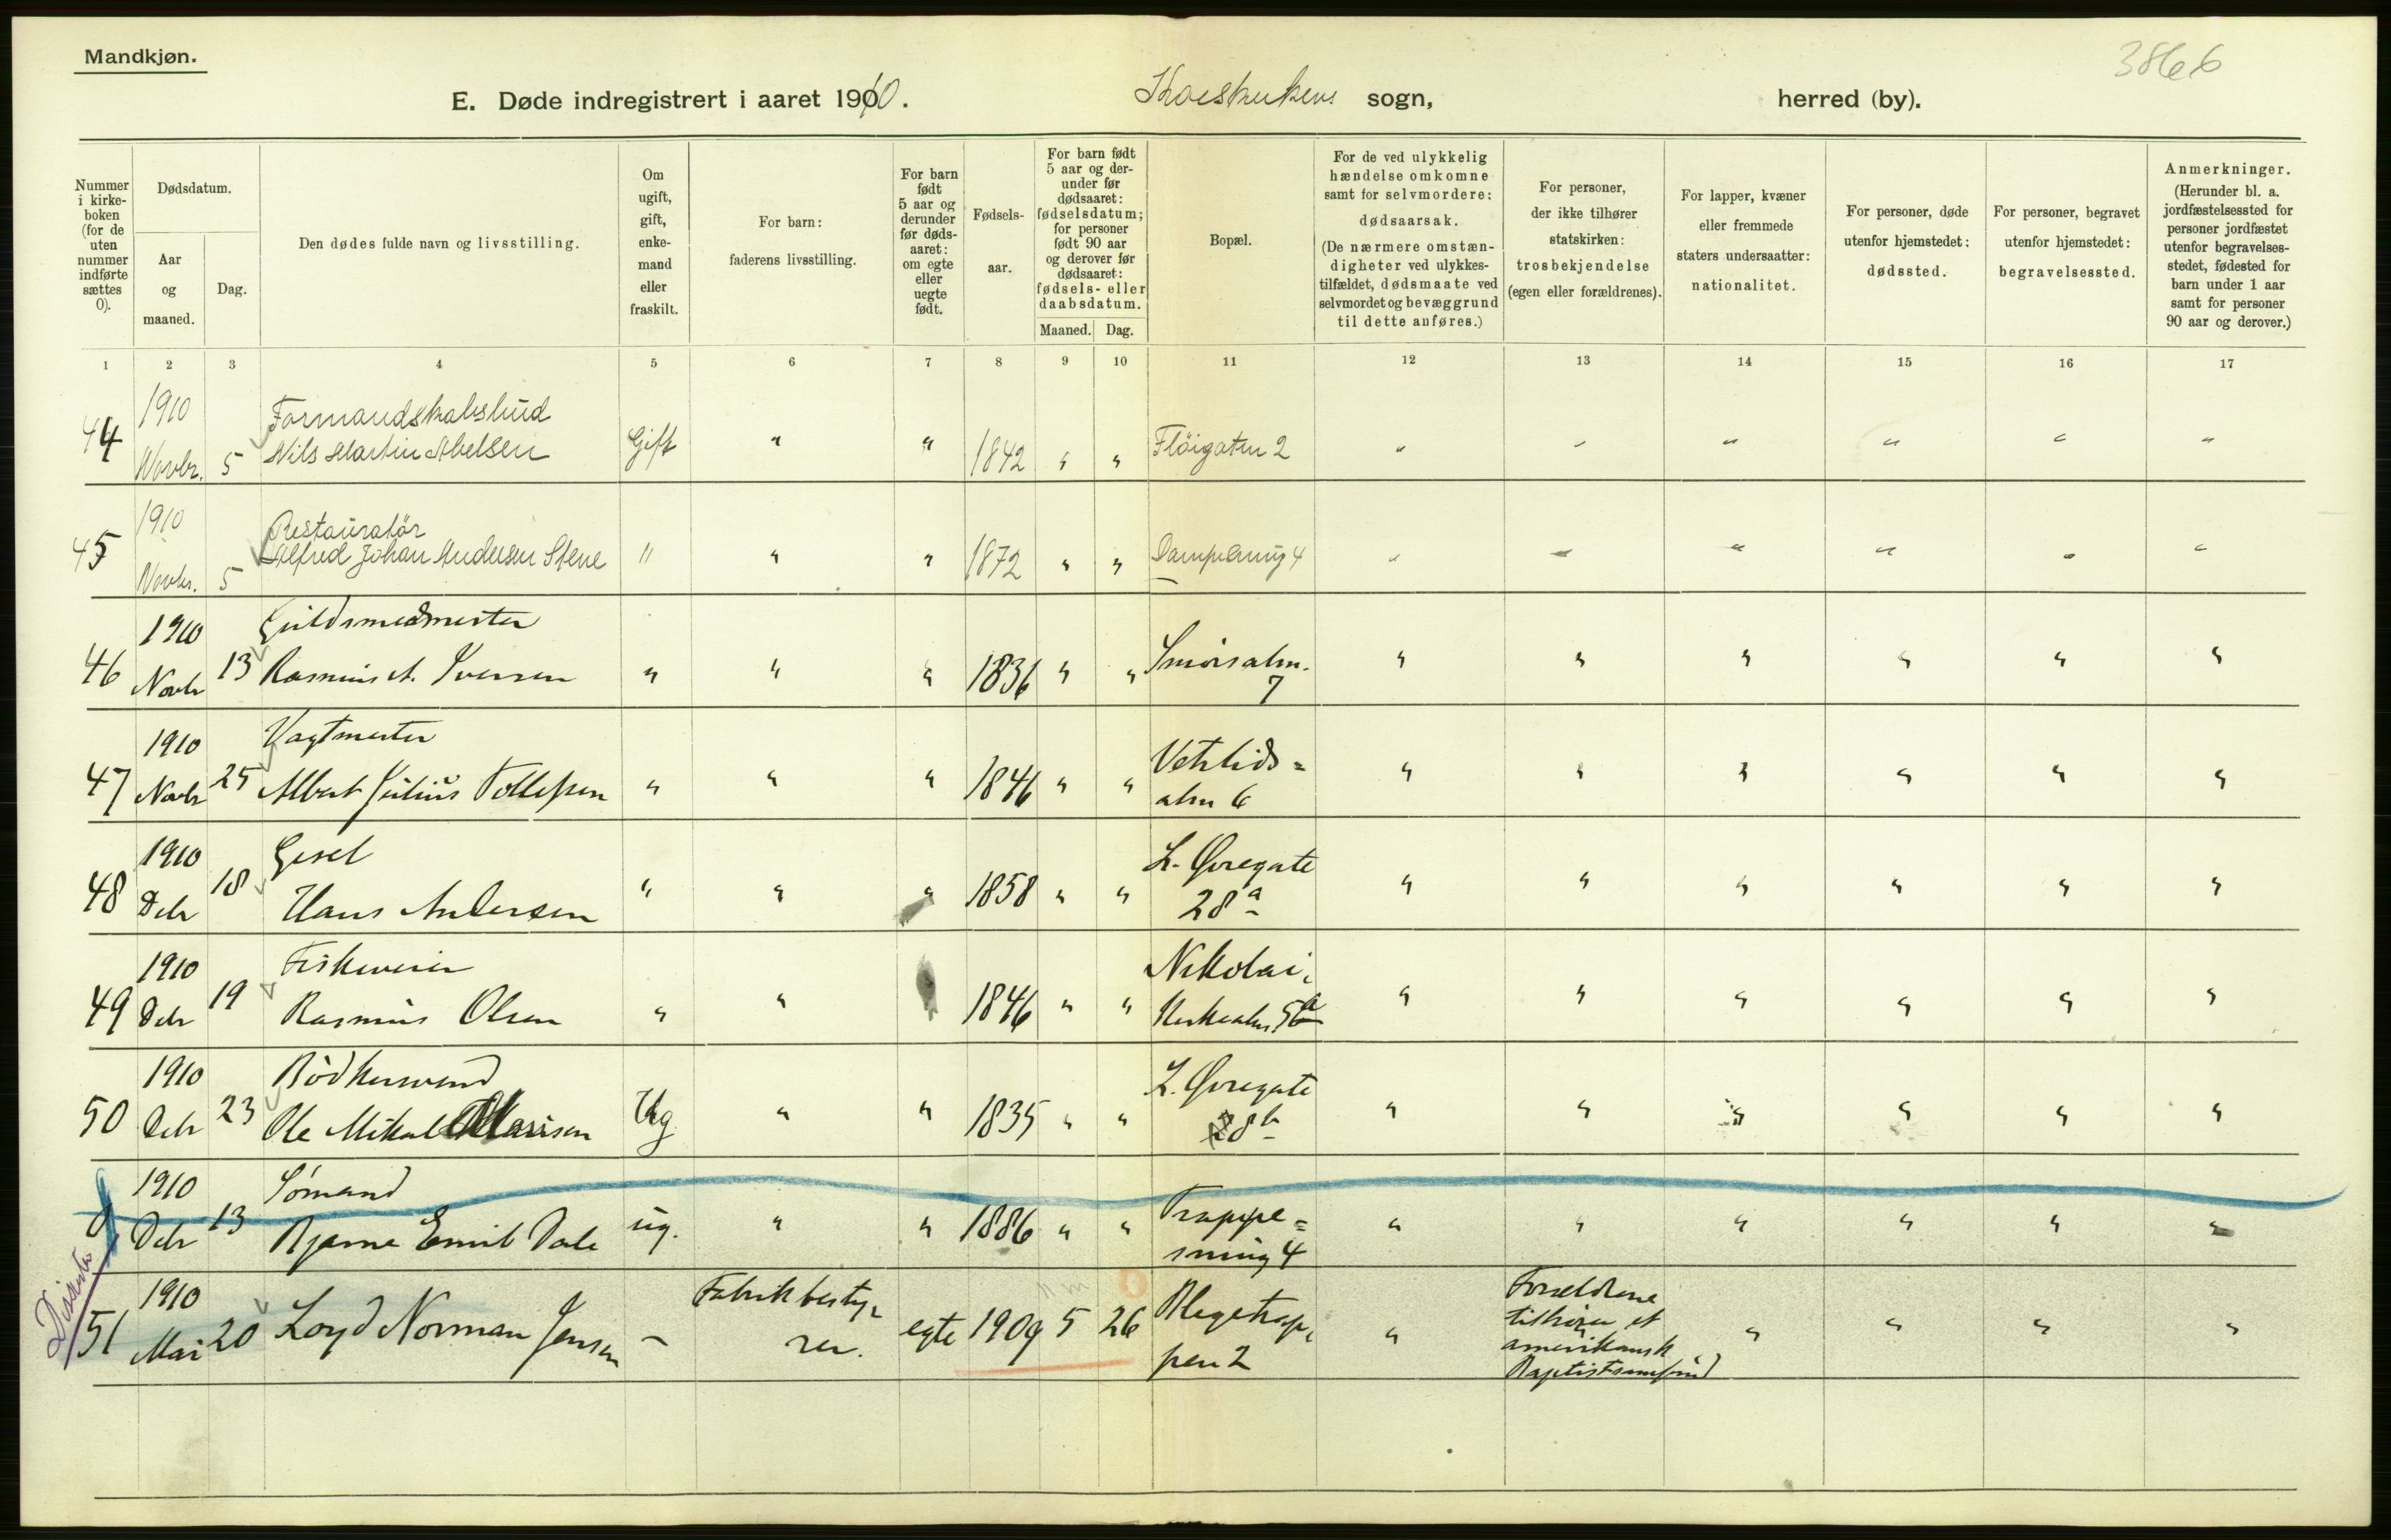 Mandkjøn.
3866
E. Døde indregistrert i aaret 1910.
Korskirkens sogn,
herred (by).
Nummer i kirkeboken (for de uten nummer indførte sættes 0).
Dødsdatum.
Aar og maaned.
Dag.
Den dødes fulde navn og livsstilling.
Om ugift, gift, enkemand eller fraskilt.
For barn: faderens livsstilling.
For barn født 5 aar og derunder før dødsaaret: om egte eller uegte født.
Fødselsaar.
For barn født 5 aar og derunder før dødsaaret: fødselsdatum; for personer født 90 aar og derover før dødsaaret: fødsels- eller daabsdatum.
Maaned.
Dag.
Bopæl.
For de ved ulykkelig hændelse omkomne samt for selvmordere: dødsaarsak. (De nærmere omstændigheter ved ulykkestilfældet, dødsmaate ved selvmordet og bevæggrund til dette anføres.)
For personer, der ikke tilhører statskirken: trosbekjendelse (egen eller forældrenes).
For lapper, kvæner eller fremmede staters undersaatter: nationalitet.
For personer, døde utenfor hjemstedet: dødssted.
For personer, begravet utenfor hjemstedet: begravelsessted.
Anmerkninger. (Herunder bl. a. jordfæstelsessted for personer jordfæstet utenfor begravelsesstedet, fødested for barn under 1 aar samt for personer 90 aar og derover.)
1 2 3 4 5 6 7 8 9 10 11 12 13 14 15 16 17
1910 Formandskabsbud
44 Novbr. 5 Nils Martin Abelsen Gift " " 1842 " " Fløigaten 2 " " " " " "
1910 Restauratör
45 Novbr. 5 Alfred Johan Andersen Stene " " " 1872 " " Dampsmug 4 " " " " " "
1910 Guldsmedmester
46 Novbr 13 Rasmus A. Iversen " " " 1836 " " Smörsalm. 7 " " " " " "
1910 Vagtmester
47 Novbr 25 Albert Julius Tollefsen " " " 1846 " " Vetrlids= alm 6 " " " " " "
1910 Gesel
48 Dcbr 18 Hans Andersen " " " 1858 " " L. Øvregate 28a " " " " " "
1910 Fiskeveier
49 Dcbr 19 Rasmus Olsen " " " 1846 " " Nikolai, Kirkealm. 5a " " " " " "
1910 Bödkersvend
50 Dcbr 23 Ole Mikal Mariisen Ug " " 1835 " " L. Øvregate 28b " " " " " "
1910 Sömand
0 Dcbr 13 Bjarne Emil Dale ug. " " 1886 " " Trappe= smug 4 " " " " " "
Dissenter
1910
51 Mai 20 Loyd Norman Jensen – Fabrikbestyrer. egte 1909 5 26 Blegetrappen 2 " Forældrene tilhører et amerikansk Baptistsamfund " " " "